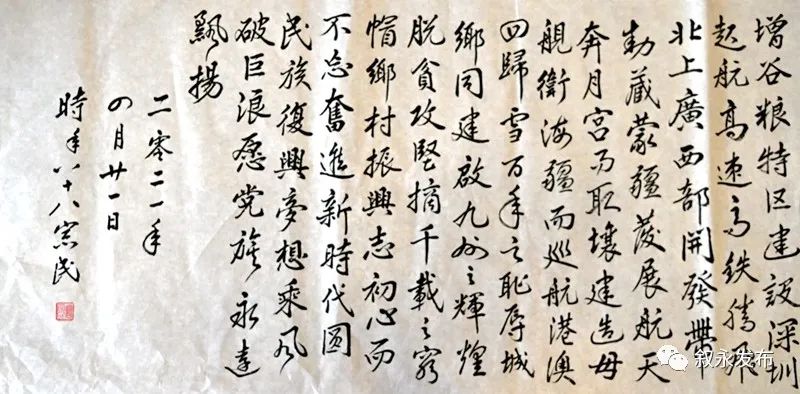 增谷粮特区建設深圳
起航高速高铁腾飛
北上廣西部開發帶
動藏蒙疆發展航天
奔月宮而取壤建造母
艦衛海疆而巡航港澳
回歸雪百年之恥辱城
鄉同建啟九州之輝煌
脱貧攻堅摘千載之窮
帽鄉村振興志初心而
不忘奮進新時代圓
民族復興夢想乘风
破巨浪愿党旗永遠
飄揚
二零二一年
四月廿一日
時年八十八憲民
叙永发布